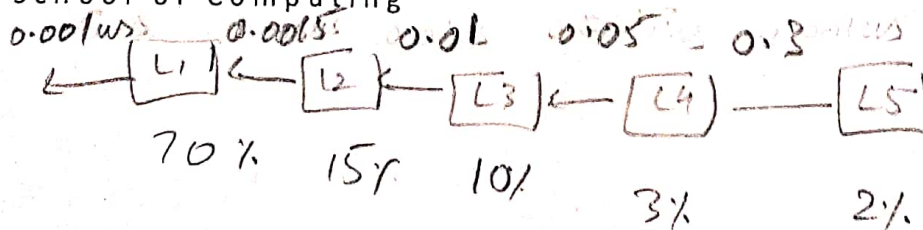 School of Computing
0.001us 0.0015 0.01 0.05 0.3
L1 L2 L3 L4 L5
70% 15% 10% 3% 2%